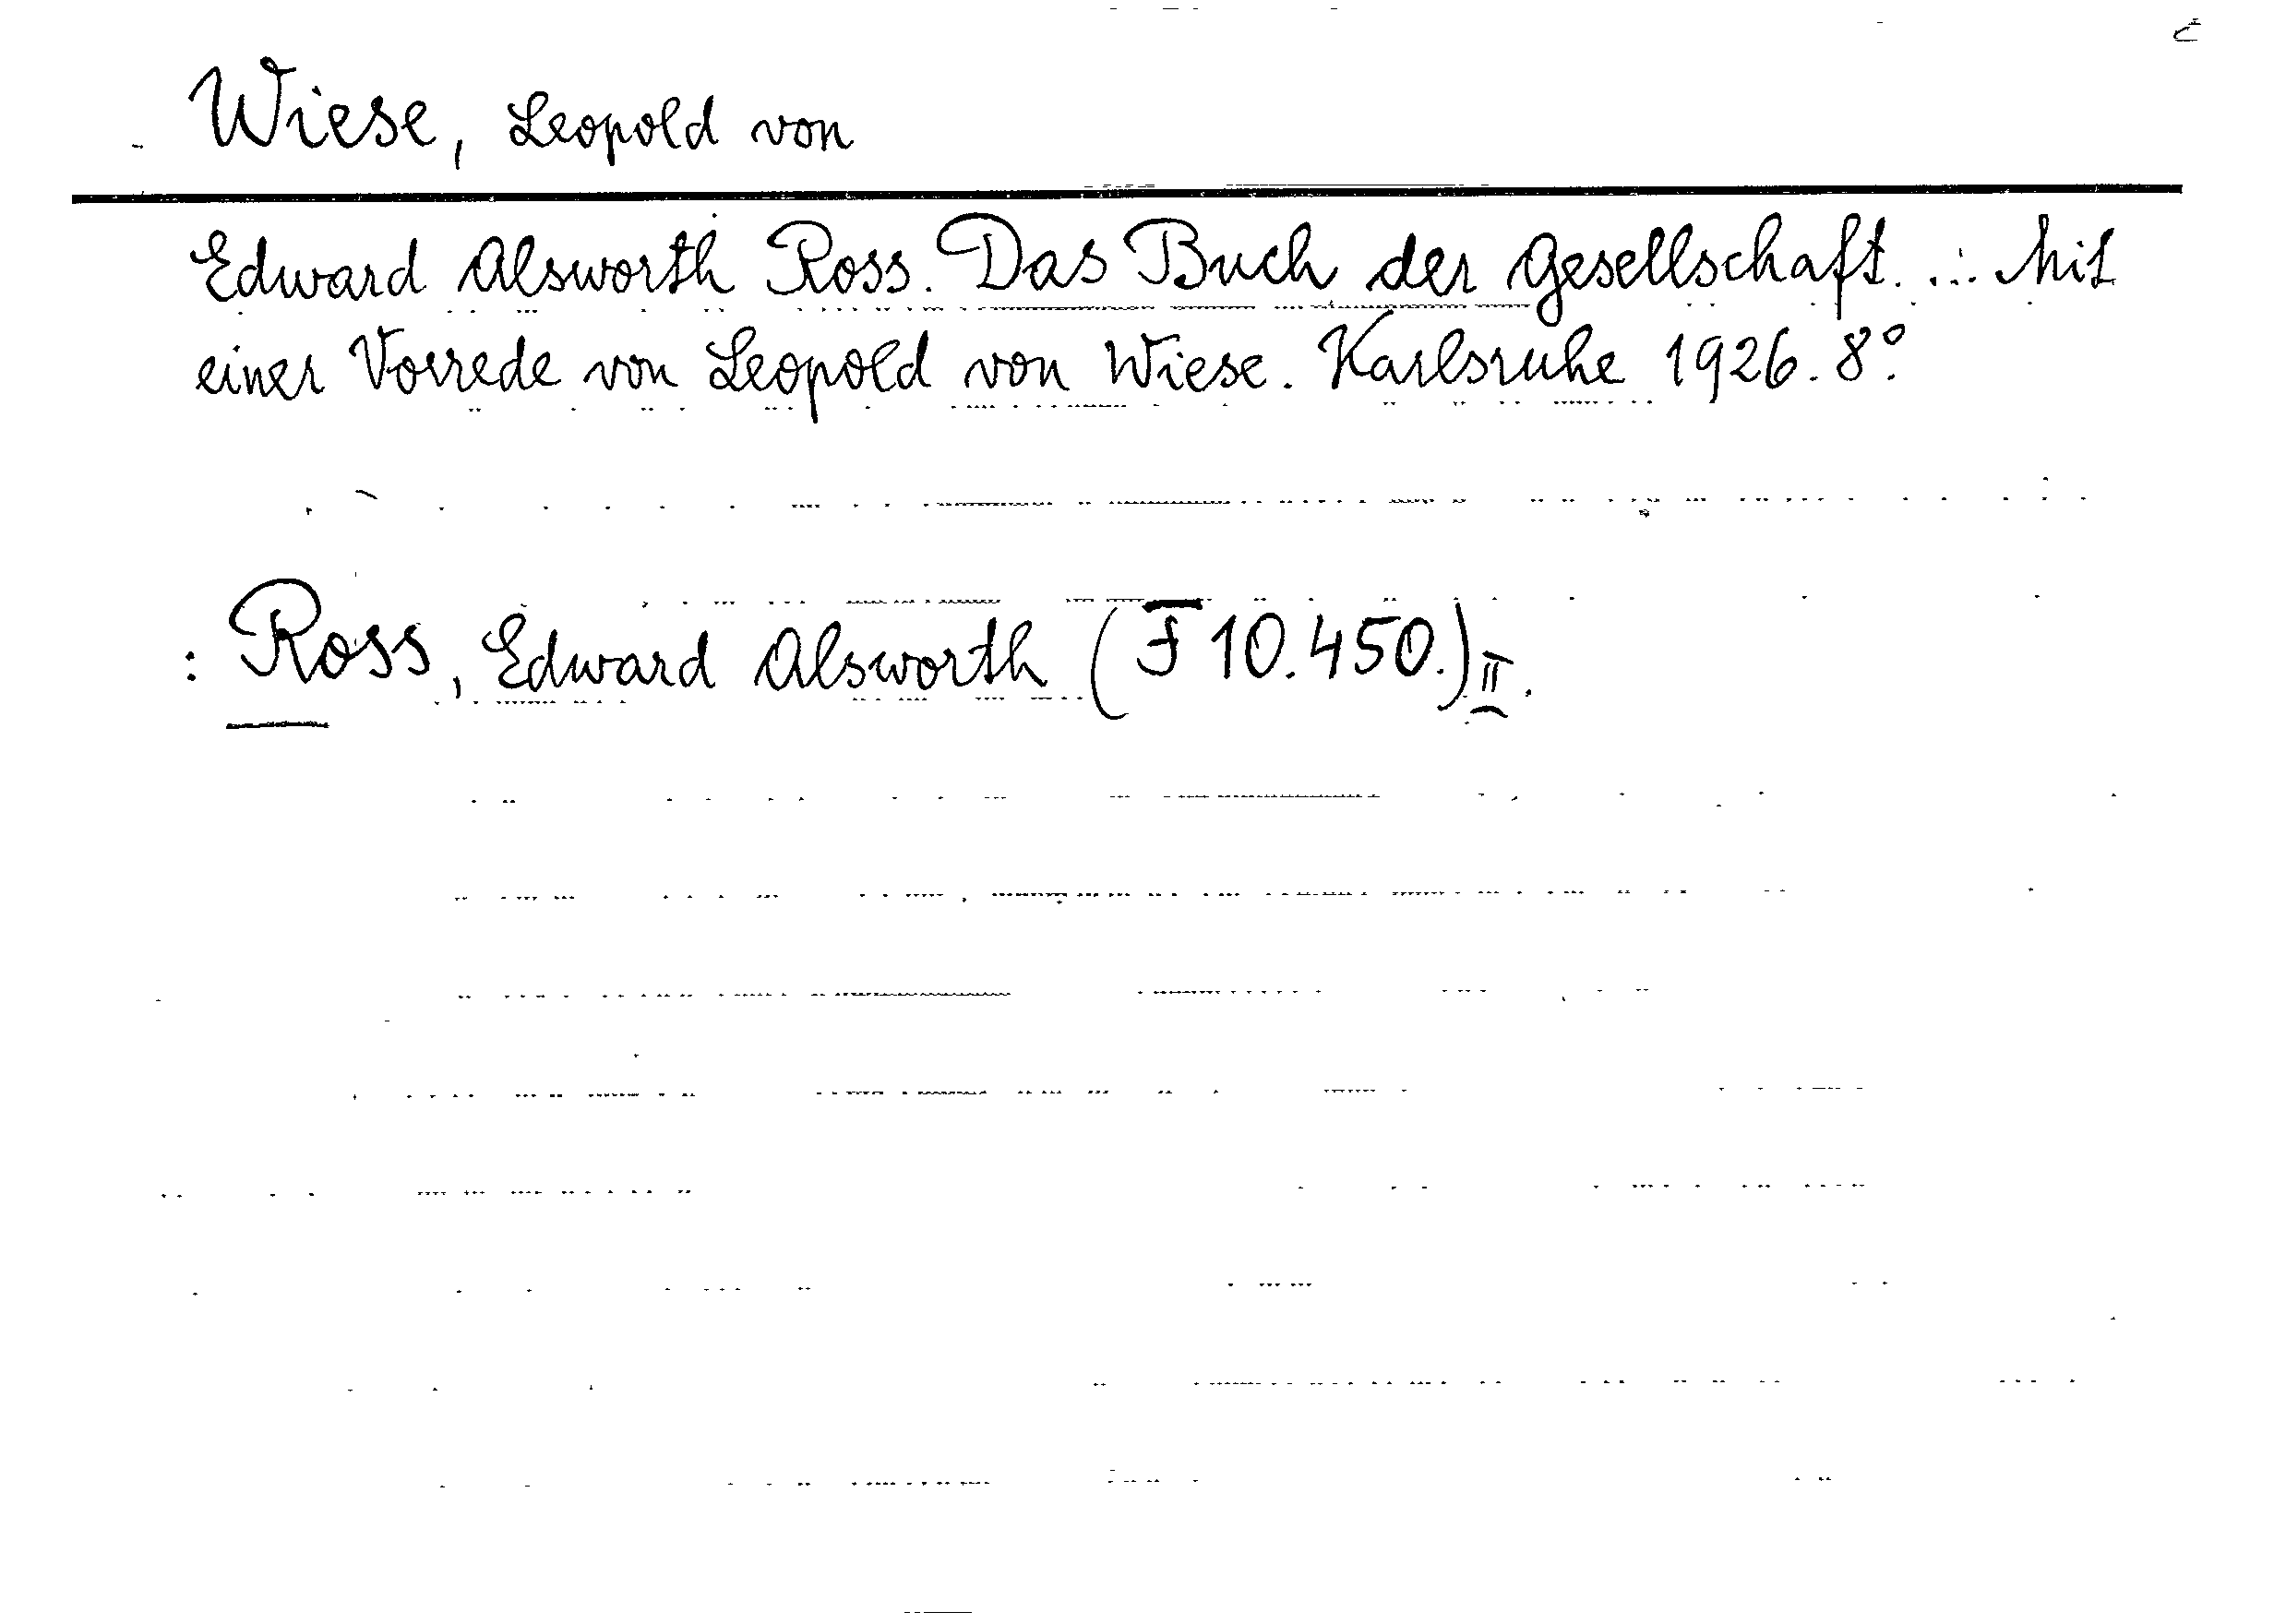 Wiese, Leopold von
Edward Alsworth Ross. Das Buch der Gesellschaft. ... Mit
einer Vorrede von Leopold von Wiese. Karlsruhe 1926. 8°.
: Ross, Edward Alsworth (F 10.450.) II.